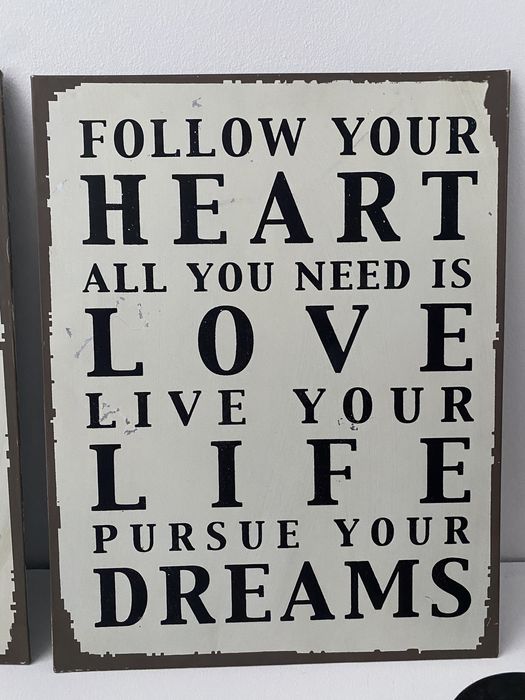 FOLLOW YOUR
HEART
ALL YOU NEED IS
LOVE
LIVE YOUR
LIFE
PURSUE YOUR
DREAMS